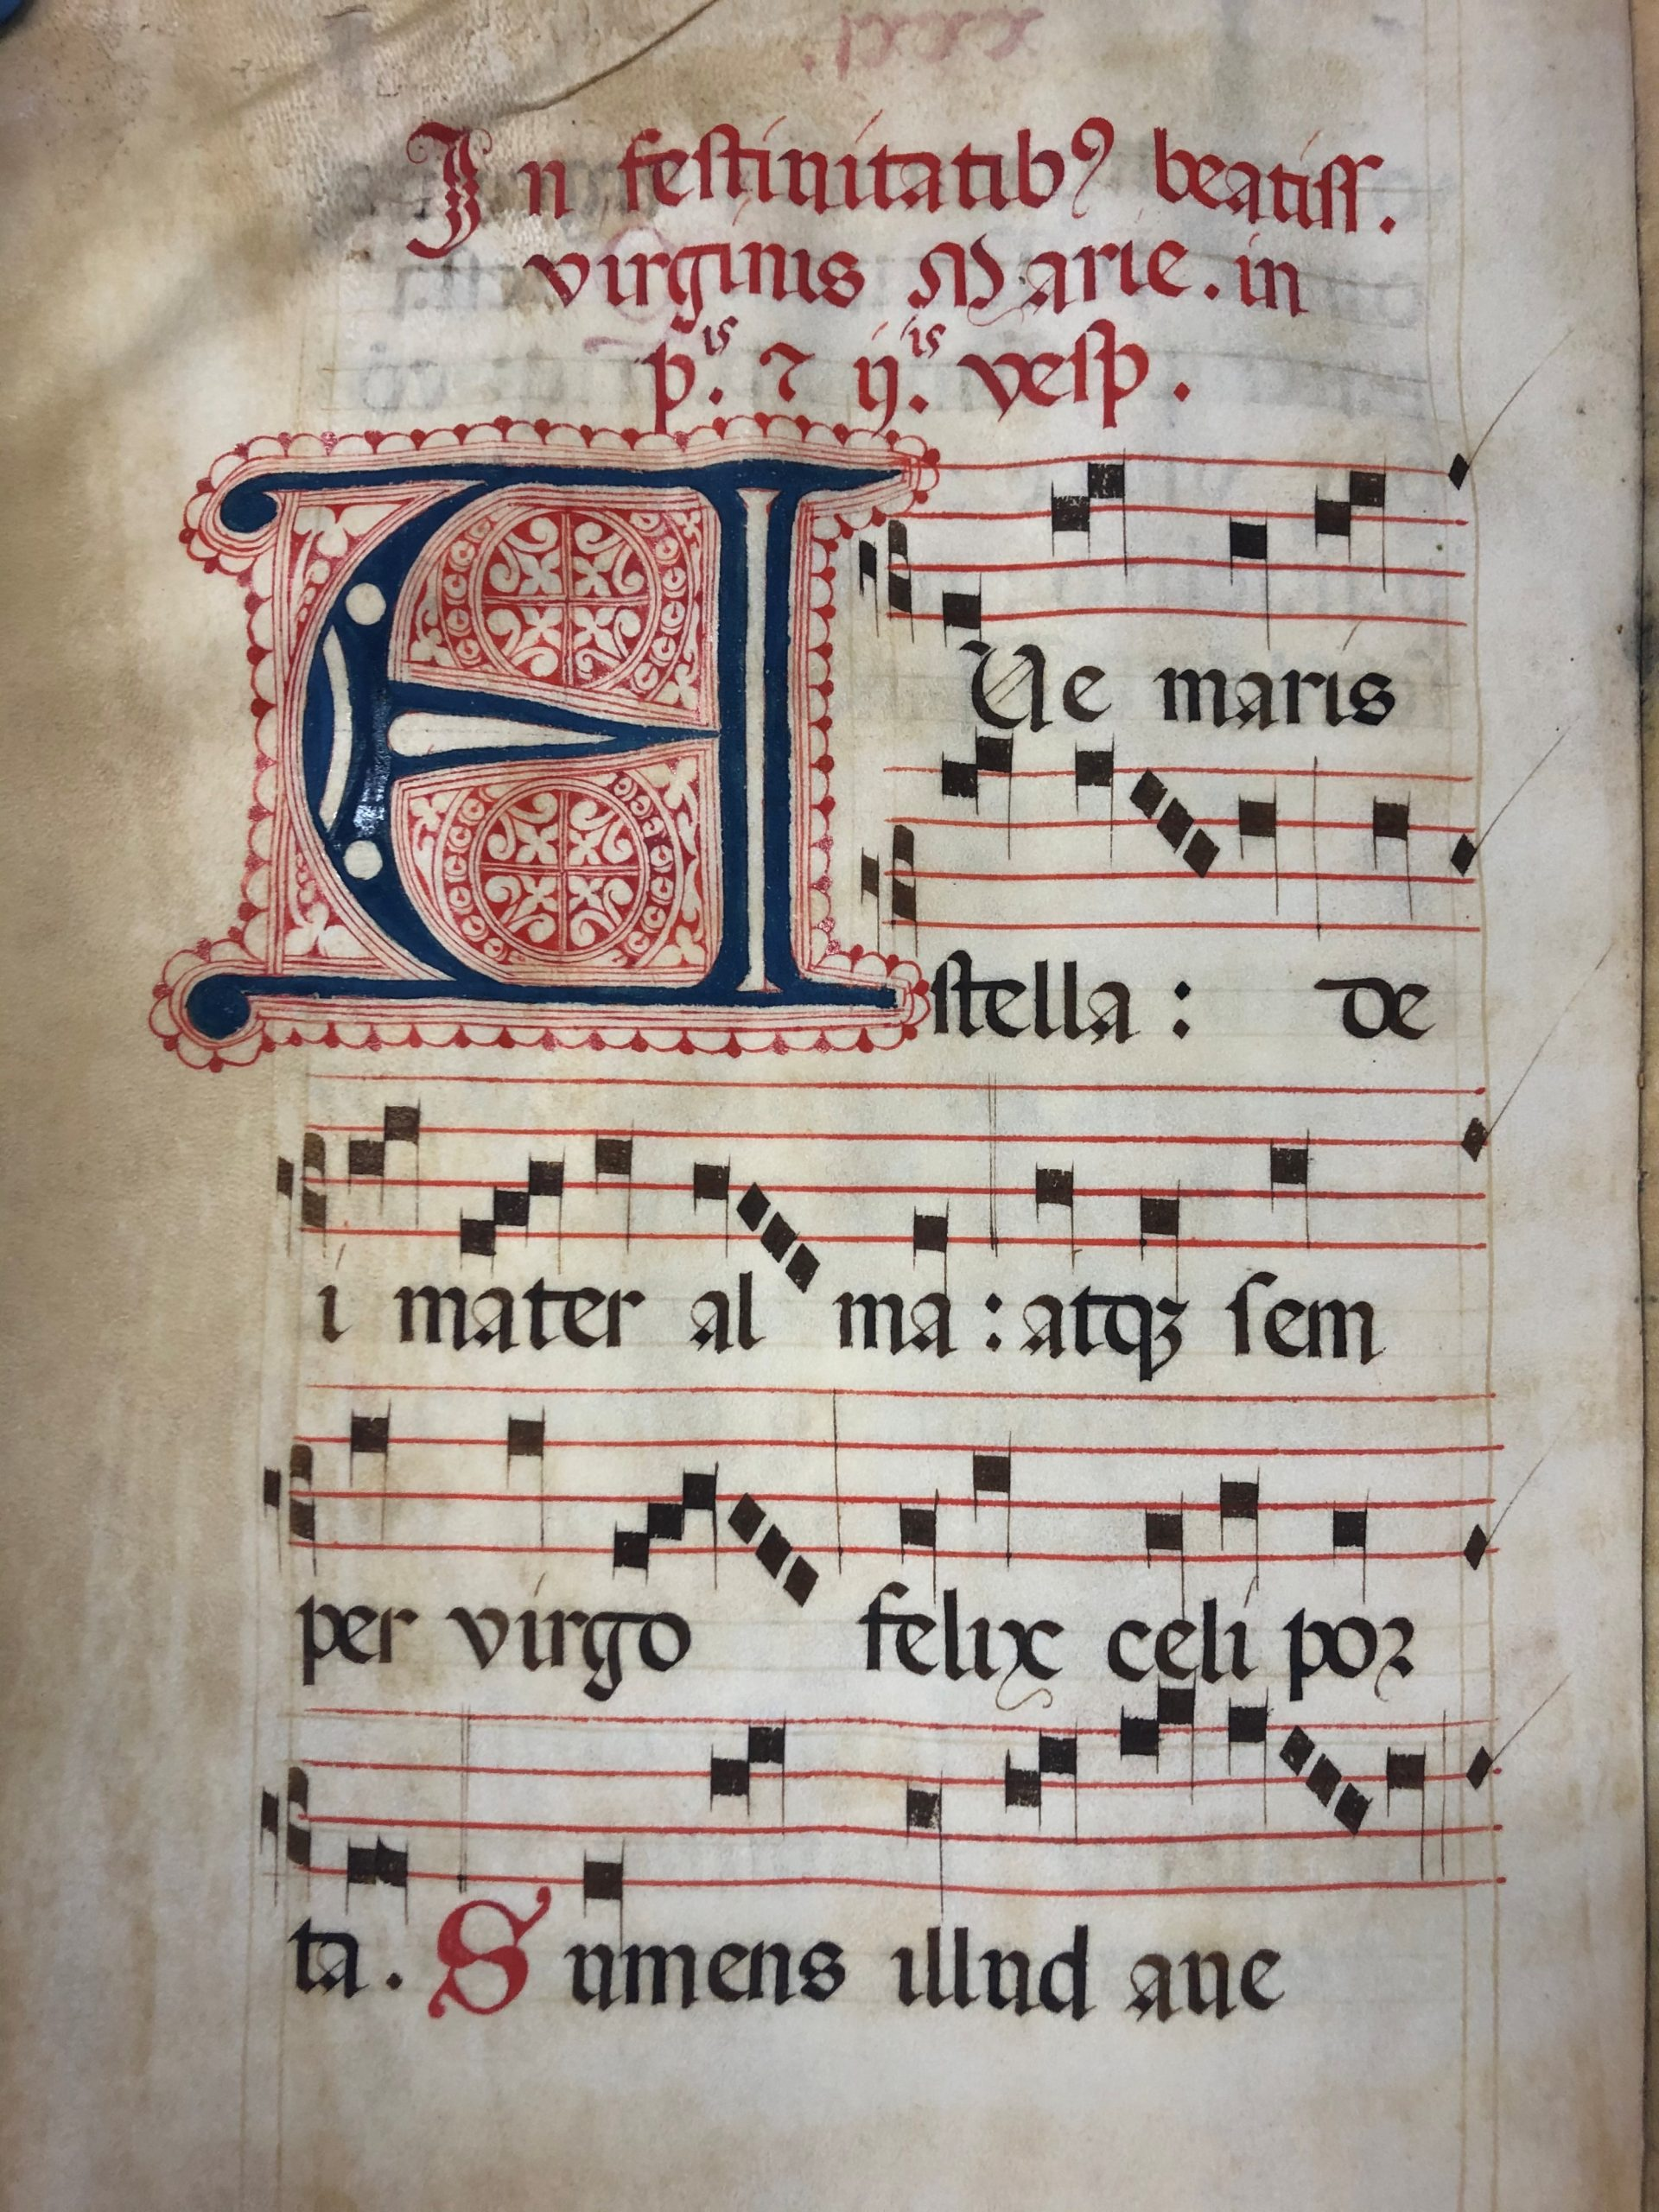 In festiuitatibꝰ beatiss.
virginis Marie. in
p̄.is ⁊ ij.is vesp.
AUe maris
stella: de
i mater al ma: atqꝫ sem
per virgo felix celi por
ta. Sumens illud aue